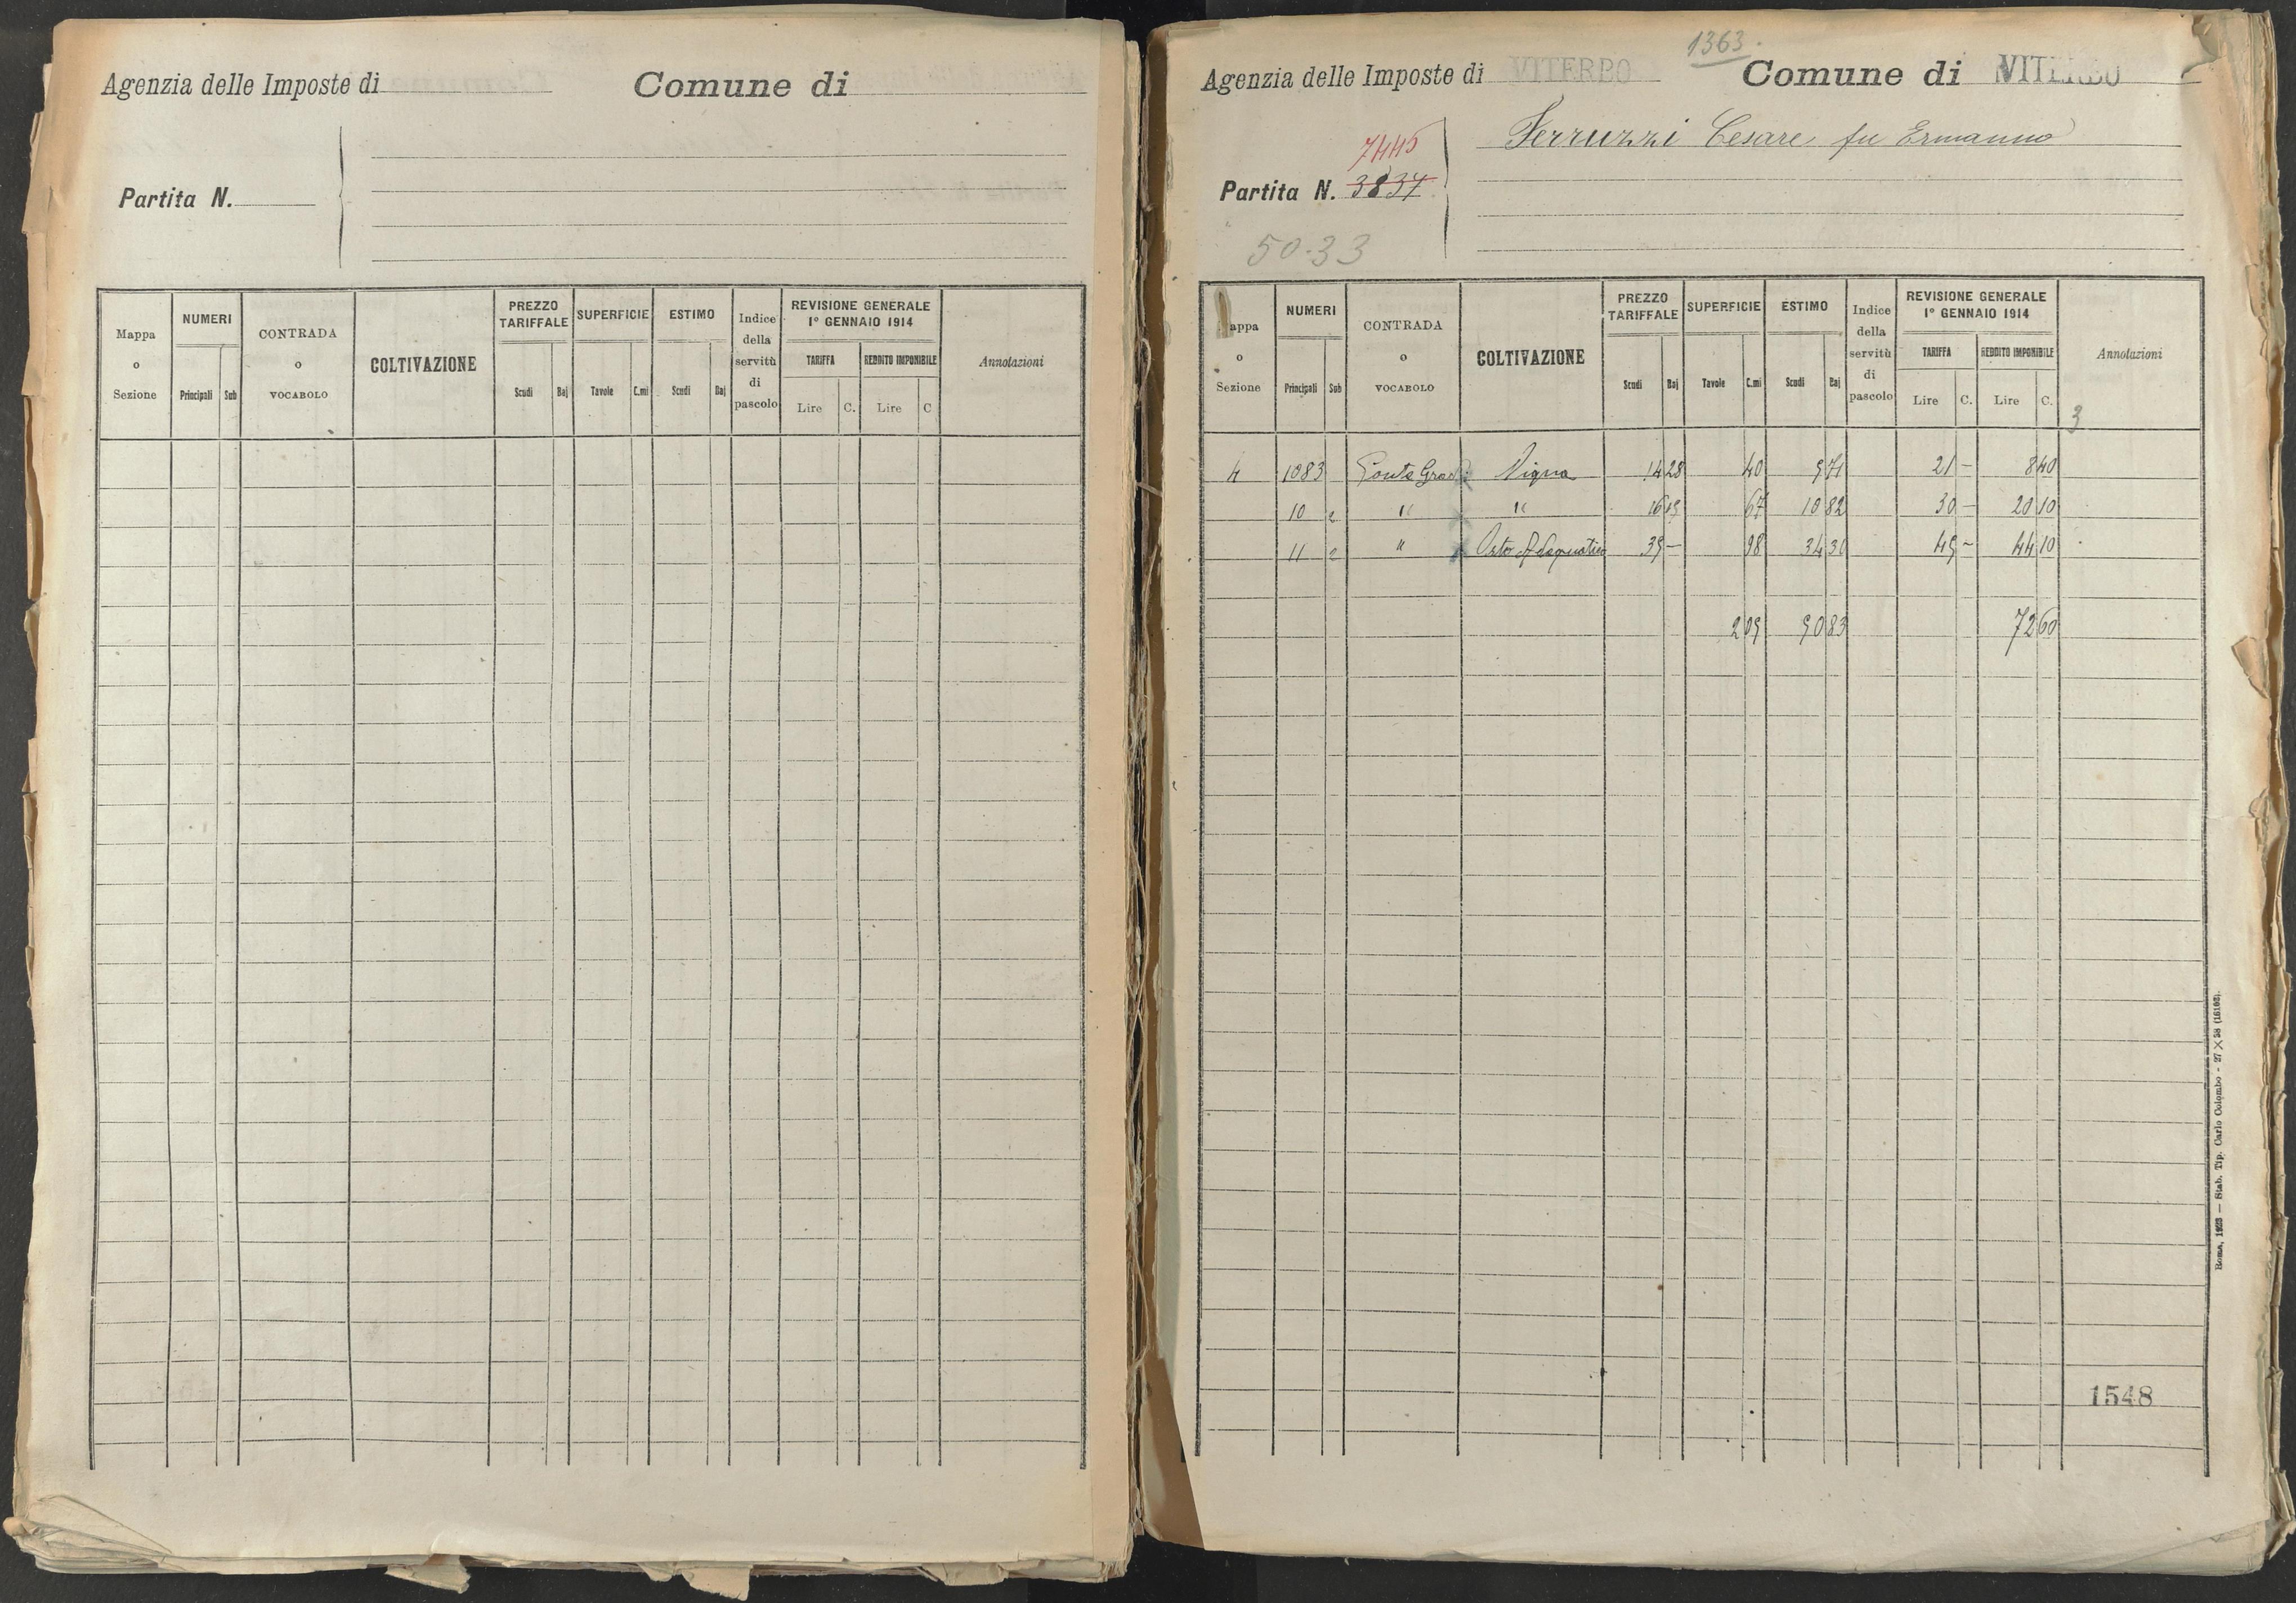 Agenzia delle Imposte di
Comune di
Partita N.
Mappa o Sezione
NUMERI
Principali Sub
CONTRADA o VOCABOLO
COLTIVAZIONE
PREZZO TARIFFALE
Scudi Baj
SUPERFICIE
Tavole C.mi
ESTIMO
Scudi Baj
Indice della servitù di pascolo
REVISIONE GENERALE
1° GENNAIO 1914
TARIFFA
Lire C.
REDDITO IMPONIBILE
Lire C
Annotazioni
1363
Agenzia delle Imposte di VITERBO
Comune di VITERBO
Ferruzzi Cesare fu Ermanno
7445
Partita N. 3837
50-33
Mappa o Sezione
NUMERI
Principali Sub
CONTRADA o VOCABOLO
COLTIVAZIONE
PREZZO TARIFFALE
Scudi Baj
SUPERFICIE
Tavole C.mi
ESTIMO
Scudi Baj
Indice della servitù di pascolo
REVISIONE GENERALE
1° GENNAIO 1914
TARIFFA
Lire C.
REDDITO IMPONIBILE
Lire C.
Annotazioni
3
4 1083 Vigna 14 28 40 5 71 21 – 8 40
10 2 " " 16 15 67 10 82 30 – 20 10
11 2 " Orto 35 – 98 34 30 45 – 44 10
2 05 50 83 72 60
1548
Roma, 1923 — Stab. Tip. Carlo Colombo - 27 × 38 (16102).